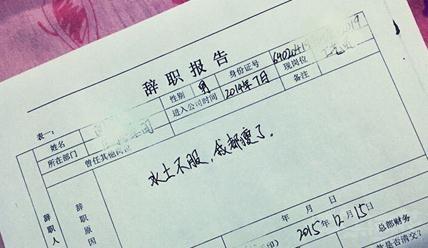 辞职报告
表一
姓名 性别 男 身份证号
所在部门 进入公司时间 2014年7月 现岗位
曾任其他岗位 备注
辞职人 辞职原因 水土不服，我都瘦了。
年 月 日
2015年12月15日
总部财务